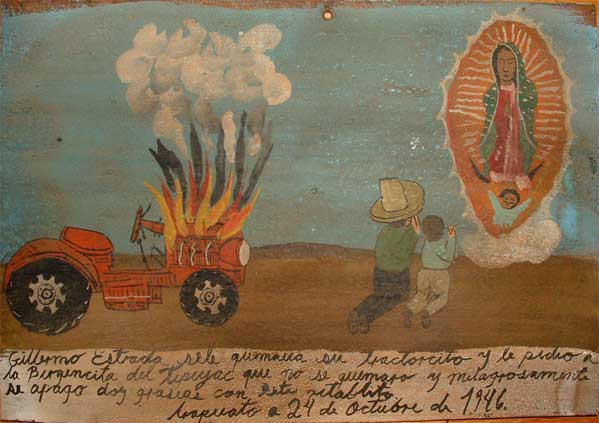 Gillermo Estrada sele quemaua su tractorcito y le pidio a
la Birgencita del Tepuyac que no se quemara y milagrosamente
se apago doy grasias con este retablito
Irapuato a 24 de Octubre de 1946.